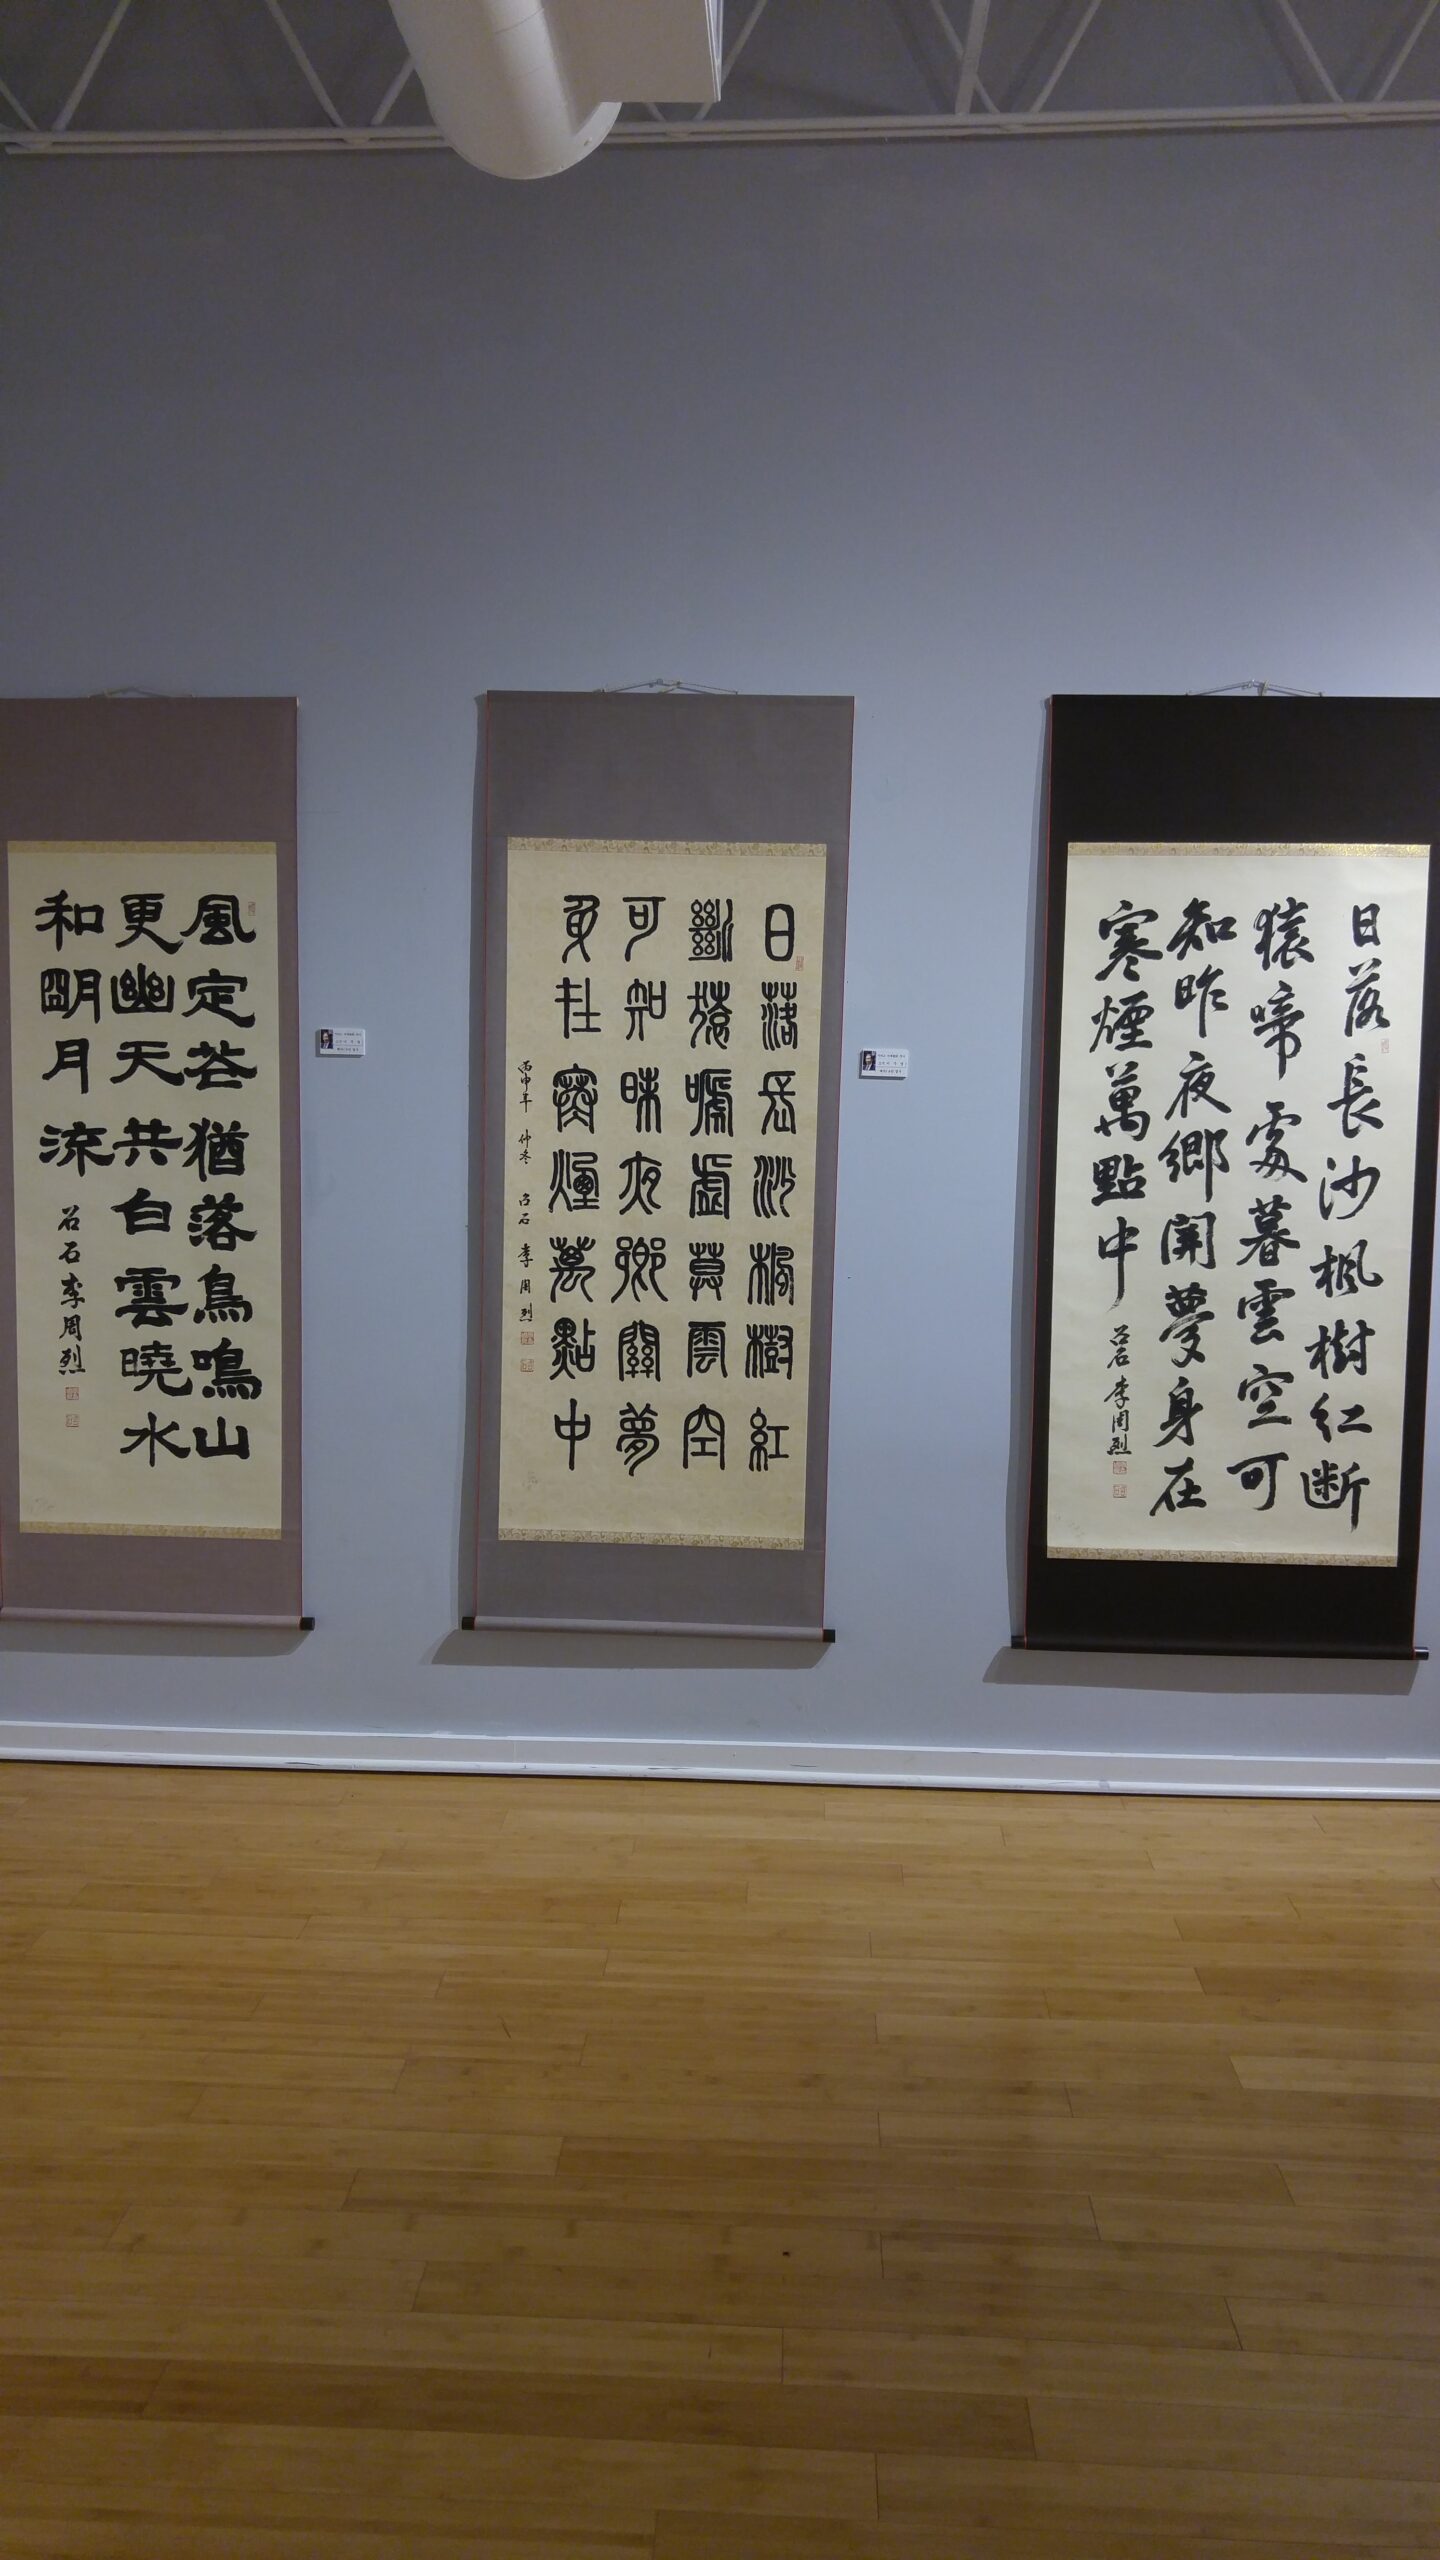 風定芲猶落鳥鳴山
更幽天共白雲曉水
和朙月流
召石李周烈
日落長沙楓樹紅
斷猿嗁處莫雲空
可知昨夜鄉關夢
身在寒煙萬點中
丙申年 仲冬 召石 李周烈
日落長沙楓樹紅断
猿啼處暮雲空可
知昨夜鄉関夢身在
寒煙萬點中
召石李周烈